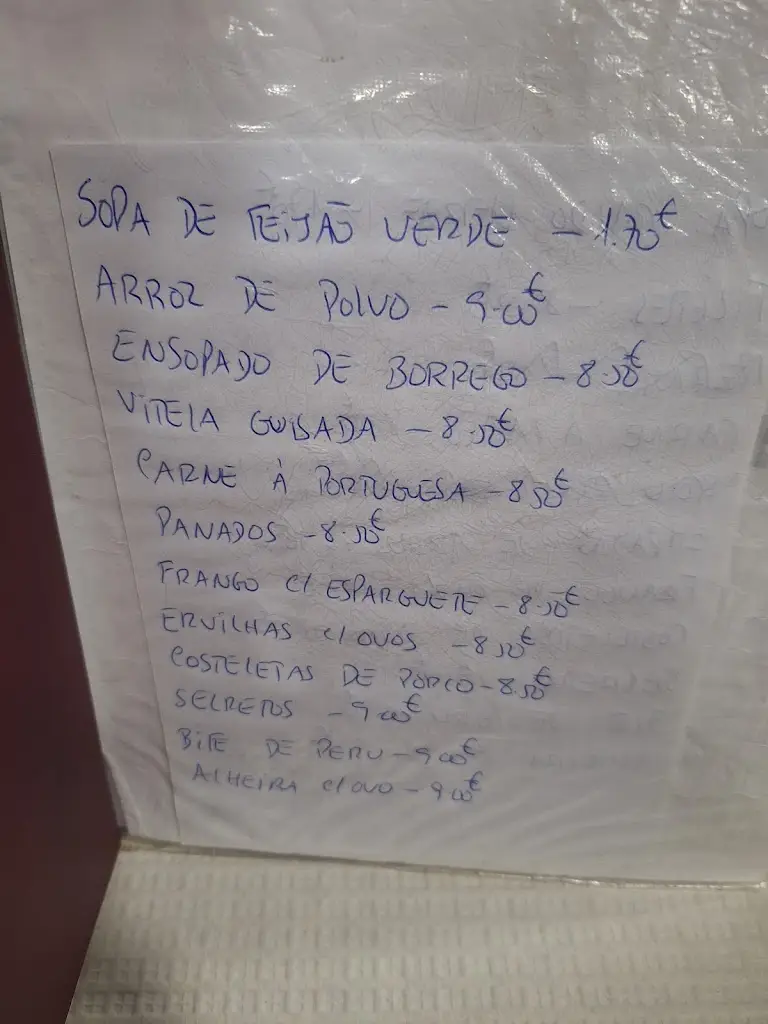 SOPA DE FEIJÃO VERDE - 1.70€
ARROZ DE POLVO - 9.00€
ENSOPADO DE BORREGO - 8.50€
VITELA GUISADA - 8.50€
CARNE À PORTUGUESA - 8.50€
PANADOS - 8.50€
FRANGO C/ ESPARGUETE - 8.50€
ERVILHAS C/ OVOS - 8.50€
COSTELETAS DE PORCO - 8.50€
SECRETOS - 9.00€
BIFE DE PERU - 9.00€
ALHEIRA C/ OVO - 9.00€